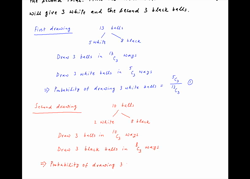 will give 3 white and the second 3 black balls.
First drawing
13 balls
5 white 8 black
Draw 3 balls in ¹³C₃ ways
Draw 3 white balls in ⁵C₃ ways
∴ Probability of drawing 3 white balls = ⁵C₃ / ¹³C₃ ①
Second drawing
10 balls
2 white 8 black
Draw 3 balls in ¹⁰C₃ ways
Draw 3 black balls in ⁸C₃ ways
∴ Probability of drawing 3